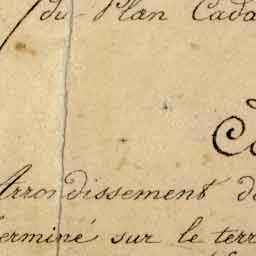 du Plan Cada
Co
Arrondissement d
erminé sur le terr